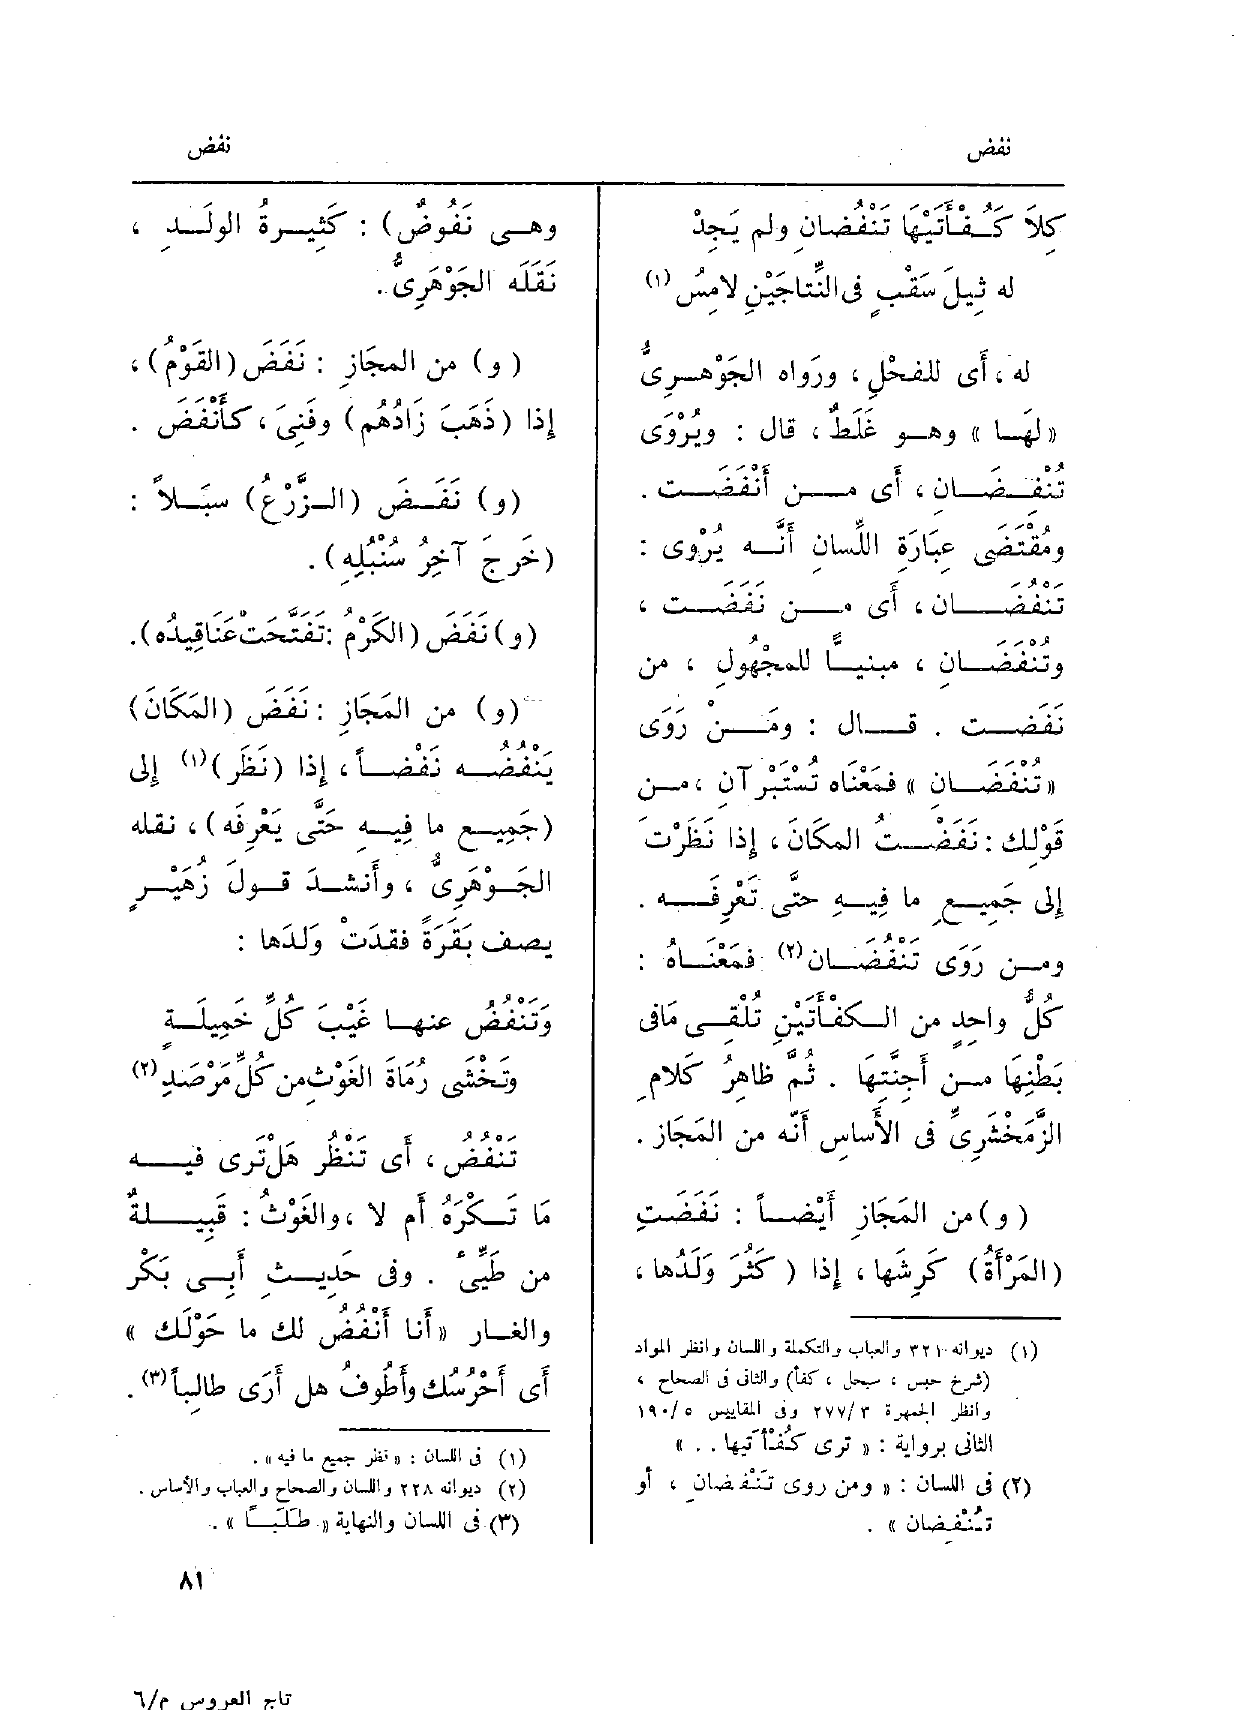 نفض
نفض
كِلاَ كَفْأَتَيْهَا تَنْفُضان ولم يَجِدْ
له ثِيلَ سَقْبٍ فى النِّتاجَيْنِ لامِسُ (١)
له ، أَى للفَحْلِ ، ورَواه الجَوْهَرِىُّ
« لهَا » وهو غَلَطٌ ، قال : ويُرْوَى
تُنْفِضَان ، أَى من أَنْفَضَت .
ومُقْتَضَى عِبَارَة اللِّسان أَنَّه يُرْوى :
تَنْفُضَان ، أَى من نَفَضَت ،
وتُنْفَضَان ، مبنيًّا للمَجْهُول ، من
نَفَضَت . قال : ومَنْ رَوَى
« تُنْفَضَان » فمَعْنَاه تُسْتَبْرآنِ ، من
قَوْلِك : نَفَضْتُ المكَانَ ، إِذا نَظَرْتَ
إِلى جَمِيعِ ما فِيهِ حتَّى تَعْرِفَه .
ومن رَوَى تَنْفُضَان (٢) فمَعْنَاهُ :
كُلُّ واحِدٍ من الكفْأَتَيْنِ تُلْقِى مَافى
بَطْنِهَا من أَجِنَّتِها . ثُمَّ ظاهِرُ كَلامِ
الزَّمَخْشَرِىِّ فى الأَساس أَنَّه من المَجَاز .
( و ) من المَجَازِ أَيْضاً : نَفَضَتِ
(المَرْأَةُ) كَرِشَها ، إِذا ( كَثُرَ وَلَدُها ،
(١) ديوانه ٣٢١ والعباب والتكملة واللسان وانظر المواد
(شرخ حبس ، سبحل ، كفأ) والثانى فى الصحاح ،
وانظر الجمهرة ٢٧٧/٣ وفى المقاييس ١٩٠/٥
الثانى برواية : « ترى كَفْأَتيها . . »
(٢) فى اللسان : « ومن روى تَنْفضان ، أو
تُنْفِضان » .
وهى نَفُوضٌ) : كَثِيرةُ الولَدِ ،
نَقَلَه الجَوْهَرِىُّ .
( و ) من المجَازِ : نَفَضَ (القَوْمُ) ،
إِذا (ذَهَبَ زَادُهُم) وفَنِىَ ، كأَنْفَضَ .
(و) نَفَضَ (الزَّرْعُ) سَبَلاً :
(خَرجَ آخِرُ سُنْبُلِه) .
(و) نَفَضَ (الكَرْمُ : تَفَتَّحَتْ عَنَاقِيدُه) .
(و) من المَجَازِ : نَفَضَ (المَكَانَ)
يَنْفُضُه نَفْضاً ، إِذا (نَظَر) (١) إِلى
(جَمِيعِ ما فِيهِ حَتَّى يَعْرِفَه) ، نقله
الجَوْهَرِىُّ ، وأَنشدَ قولَ زُهَيْرٍ
يصف بَقَرَةً فقدَتْ وَلَدَها :
وَتَنْفُضُ عنها غَيْبَ كُلِّ خَمِيلَةٍ
وتَخْشَى رُمَاةَ الغَوْثِ من كلِّ مَرْصَدِ (٢)
تَنْفُض ، أَى تَنْظُر هَلْ تَرى فيه
مَا تَكرَهُ أَم لا ، والغَوْثُ : قَبِيلةٌ
من طَيِّىءٍ . وفى حَدِيثِ أَبِى بَكْر
والغار « أَنا أَنْفُضُ لك ما حَوْلَك »
أَى أَحْرُسُك وأَطُوفُ هل أَرَى طالِباً (٣) .
(١) فى اللسان : « نظر جميع ما فيه » .
(٢) ديوانه ٢٢٨ واللسان والصحاح والعباب والأساس .
(٣) فى اللسان والنهاية « طَلَباً » .
٨١
تاج العروس م/٦